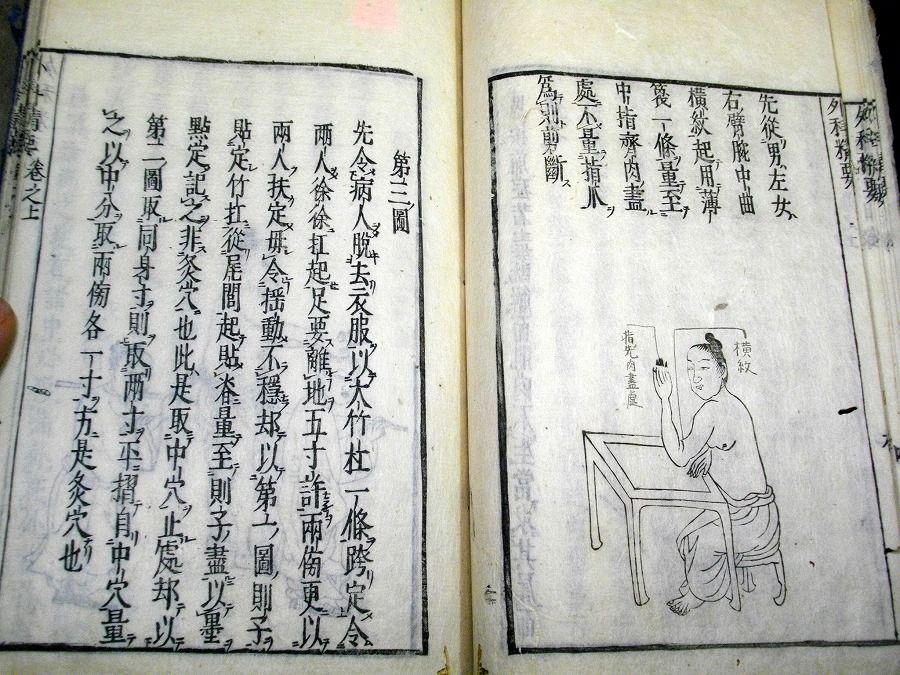 先從男左女
右臂腕中曲
橫紋起用薄
篾一條量至
中指齊肉盡
處不量指爪
爲則剪斷
橫紋
指先肉盡處
外科精要
第三圖
先令病人脫去衣服以大竹杜一條跨定令
兩人徐徐扛起足要離地五寸許兩傍更以
兩人扶定毋令揺動不穩却以第一圖則子
貼定竹扛從尾閭起貼脊量至則子盡以墨
點定記之非灸穴也此是取中穴止處却以
第二圖取同身寸則取兩寸平摺自中穴量
之以中分取兩傍各一寸方是灸穴也
卷之上